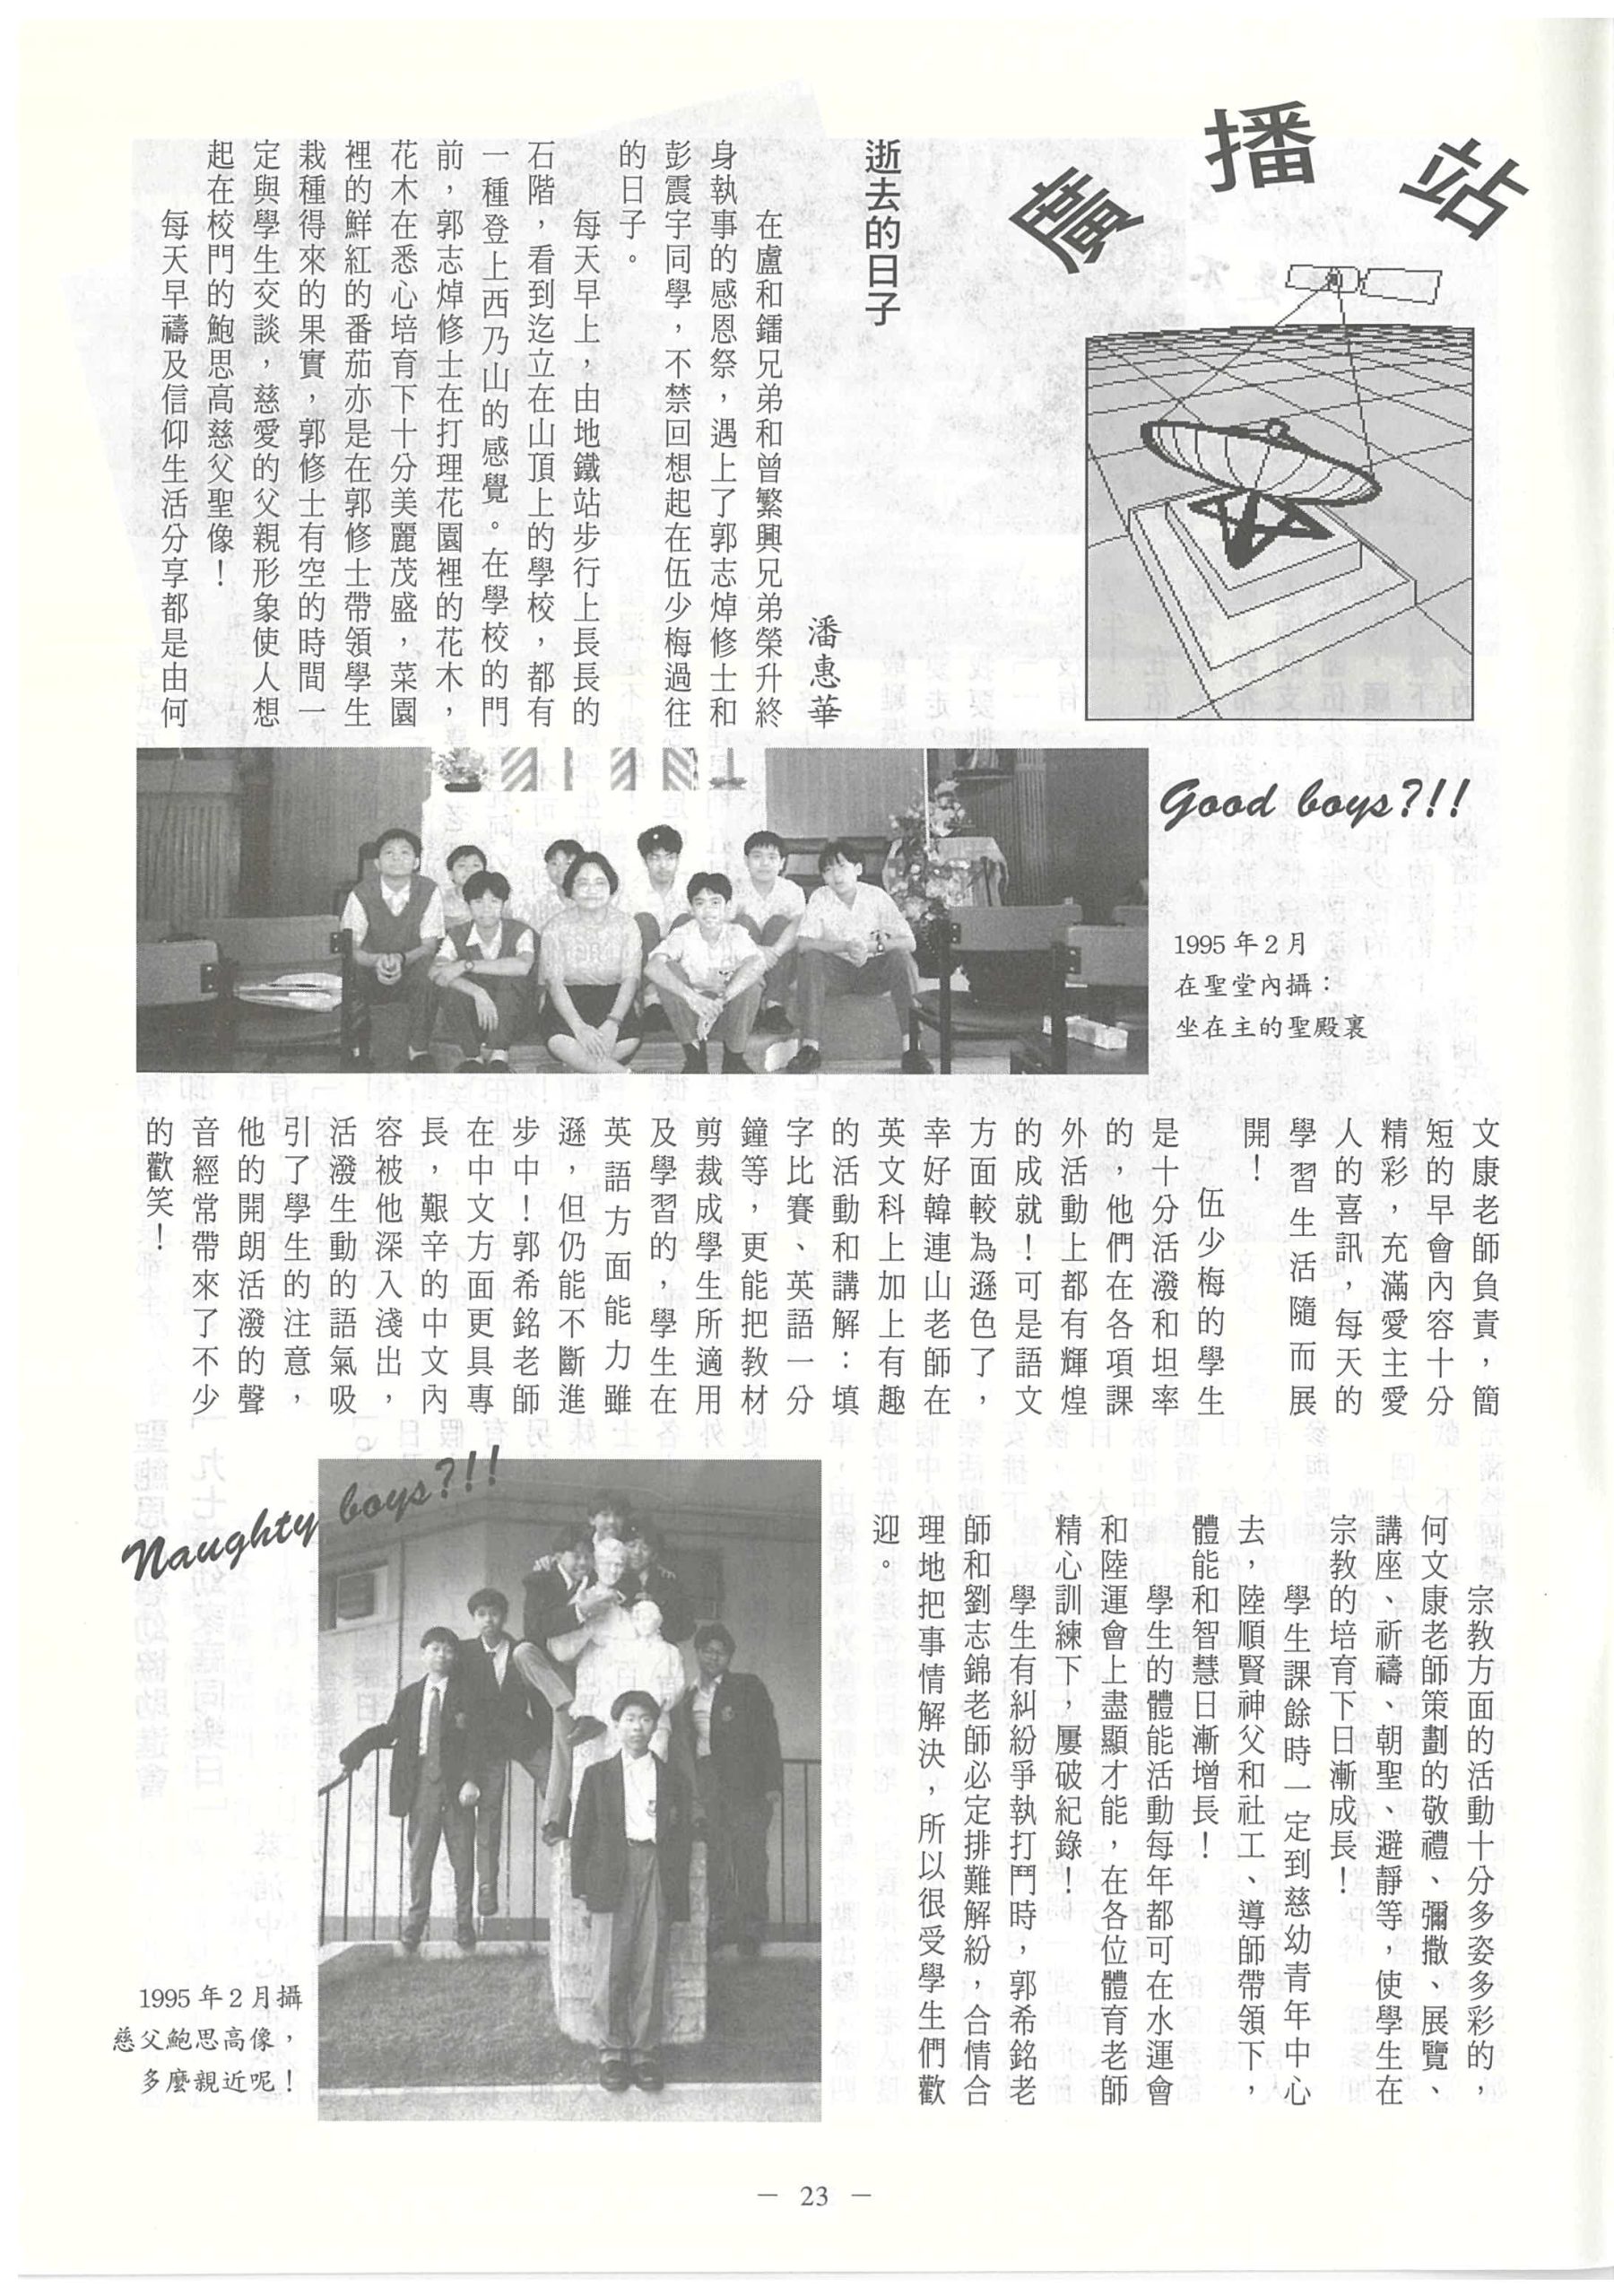 廣播站
逝去的日子
潘惠華
在盧和鐳兄弟和曾繁興兄弟榮升終
身執事的感恩祭，遇上了郭志焯修士和
彭震宇同學，不禁回想起在伍少梅過往
的日子。
每天早上，由地鐵站步行上長長的
石階，看到迄立在山頂上的學校，都有
一種登上西乃山的感覺。在學校的門
前，郭志焯修士在打理花園裡的花木，
花木在悉心培育下十分美麗茂盛，菜園
裡的鮮紅的番茄亦是在郭修士帶領學生
栽種得來的果實，郭修士有空的時間一
定與學生交談，慈愛的父親形象使人想
起在校門的鮑思高慈父聖像！
每天早禱及信仰生活分享都是由何
Good boys?!!
1995年2月
在聖堂內攝：
坐在主的聖殿裏
文康老師負責，簡
短的早會內容十分
精彩，充滿愛主愛
人的喜訊，每天的
學習生活隨而展
開！
伍少梅的學生
是十分活潑和坦率
的，他們在各項課
外活動上都有輝煌
的成就！可是語文
方面較為遜色了，
幸好韓連山老師在
英文科上加上有趣
的活動和講解：填
字比賽、英語一分
鐘等，更能把教材
剪裁成學生所適用
及學習的，學生在
英語方面能力雖
遜，但仍能不斷進
步中！郭希銘老師
在中文方面更具專
長，艱辛的中文內
容被他深入淺出，
活潑生動的語氣吸
引了學生的注意，
他的開朗活潑的聲
音經常帶來了不少
的歡笑！
宗教方面的活動十分多姿多彩的，
何文康老師策劃的敬禮、彌撒、展覽、
講座、祈禱、朝聖、避靜等，使學生在
宗教的培育下日漸成長！
學生課餘時一定到慈幼青年中心
去，陸順賢神父和社工、導師帶領下，
體能和智慧日漸增長！
學生的體能活動每年都可在水運會
和陸運會上盡顯才能，在各位體育老師
精心訓練下，屢破紀錄！
學生有糾紛爭執打鬥時，郭希銘老
師和劉志錦老師必定排難解紛，合情合
理地把事情解決，所以很受學生們歡
迎。
Naughty boys?!!
1995年2月攝
慈父鮑思高像，
多麼親近呢！
— 23 —